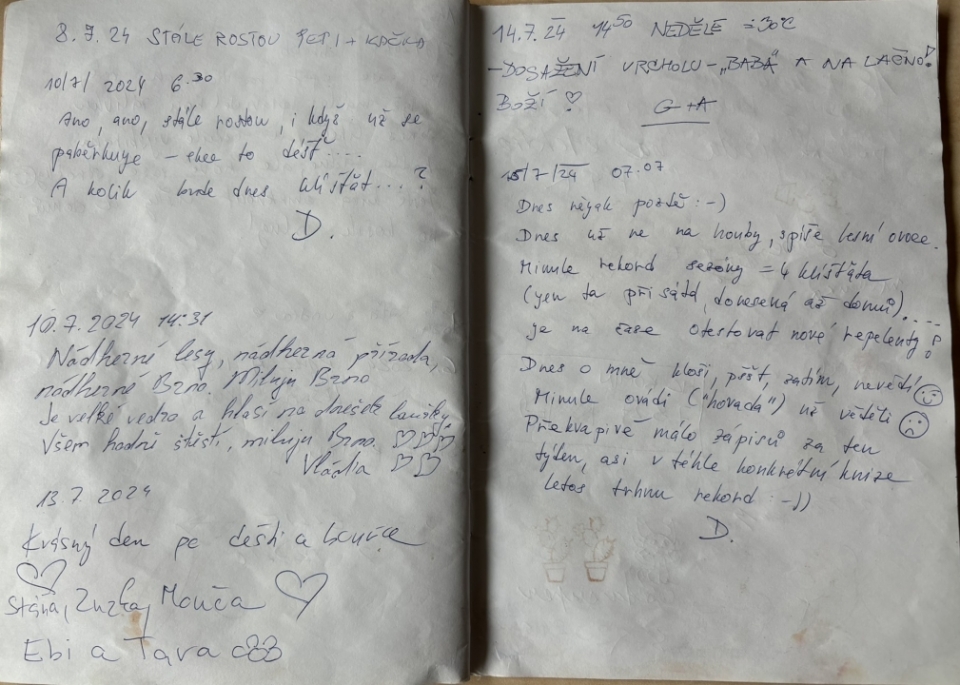 8.7.24 STÁLE ROSTOU PETI + KAČKA
10/7/ 2024 6.30
Ano, ano, stále rostou, i když už se
paběrkuje – chce to déšť....
A kolik bude dnes klíšťat...?
D.
10.7.2024 14:31
Nádherné lesy, nádherná příroda,
nádherné Brno. Miluju Brno
Je velké vedro a hlásí na dnešek bouřky.
Všem hodně štěstí, miluju Brno. ♡♡♡
Vláďa ♡♡
13.7.2024
Krásný den po dešti a bouřce
♡
Stáňa, Zuzka, Monča ♡
Ebi a Tara
14.7.24 14 50 NEDĚLE =30°C
-DOSAŽENÍ VRCHOLU-„BABA" A NA LAČNO!
BOŽÍ ♡ G+A
15/7/24 07.07
Dnes nějak pozdě :-)
Dnes už ne na houby, spíše lesní ovoce.
Minule rekord sezóny = 4 klíšťata
(jen ta přisátá, donesená až domů)....
je na čase otestovat nové repelenty?
Dnes o mně kloši, pššt, zatím, nevědí ☺
Minule ovádi ("hovada") už věděli ☹
Překvapivě málo zápisů za ten
týden, asi v téhle konkrétní knize
letos trhnu rekord :-))
D.